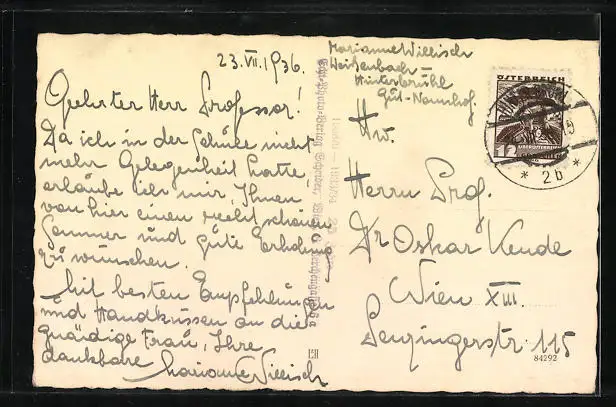 23.VII.1936.
Geehrter Herr Professor!
Da ich in der Schule nicht
mehr Gelegenheit hatte
erlaube ich mir, Ihnen
von hier einen recht schönen
Sommer und gute Erholung
zu wünschen.
Mit besten Empfehlungen
und Handküssen an die
gnädige Frau, Ihre
dankbare Marianne Willisch
Marianne Willisch
Weißenbach -
Hinterbrühl
Gut-Naunhof.
Hw.
Herrn Prof.
Dr Oskar Kende
Wien XIII.
Penzingerstr. 115
84292
ÖSTERREICH
12
OBERÖSTERREICH
* 2b *